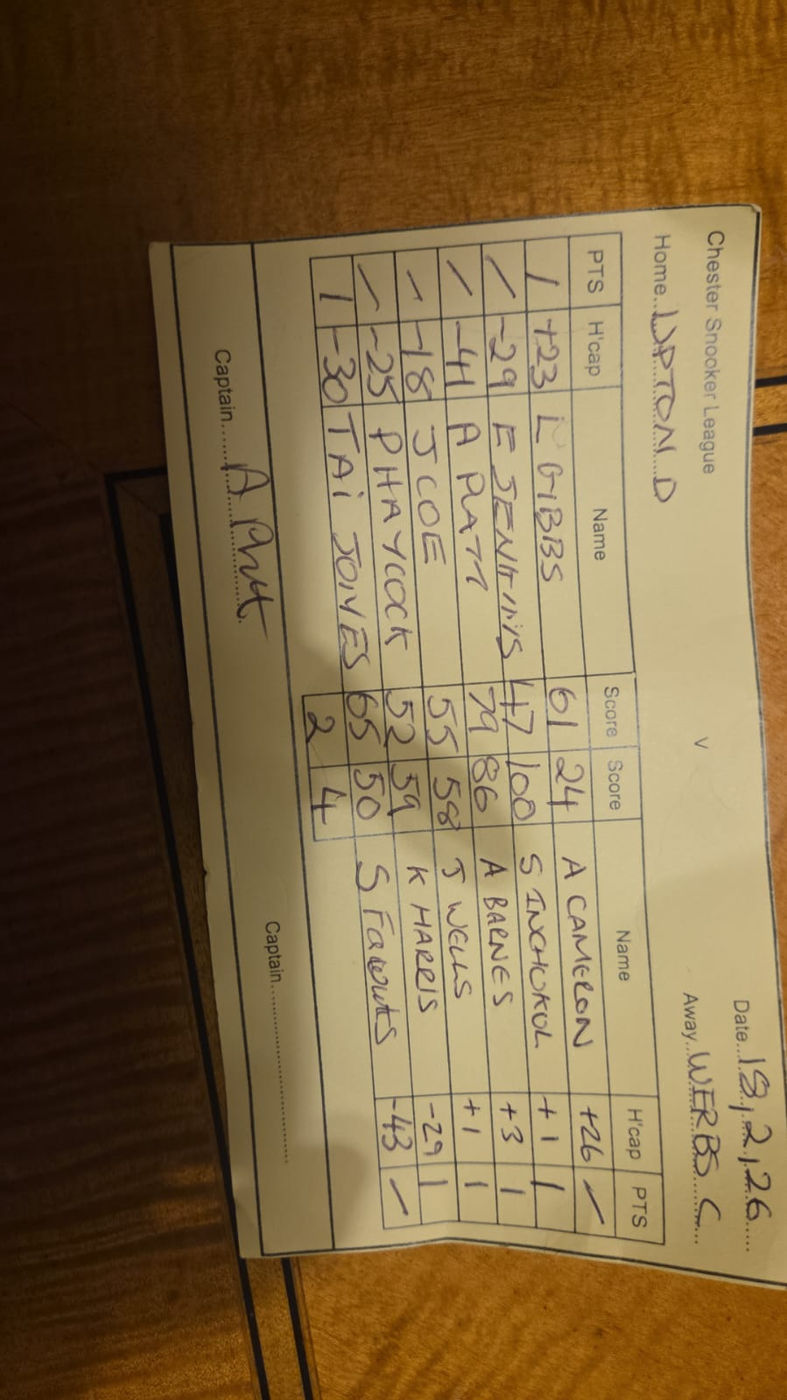 Chester Snooker League
Date 18,2,26
Home UPTON D v Away WERBS C
PTS H'cap Name Score Score Name H'cap PTS
1 +23 L GIBBS 61 24 A CAMERON +26 /
/ -29 E JENKINS 47 100 S +1 1
/ -41 A PLATT 79 86 A BARNES +3 1
/ -18 J COE 55 58 J WELLS +1 1
/ -25 P HAYCOCK 52 59 K HARRIS -29 1
1 -30 TAI JONES 65 50 S -43 /
2 4
Captain A Platt Captain